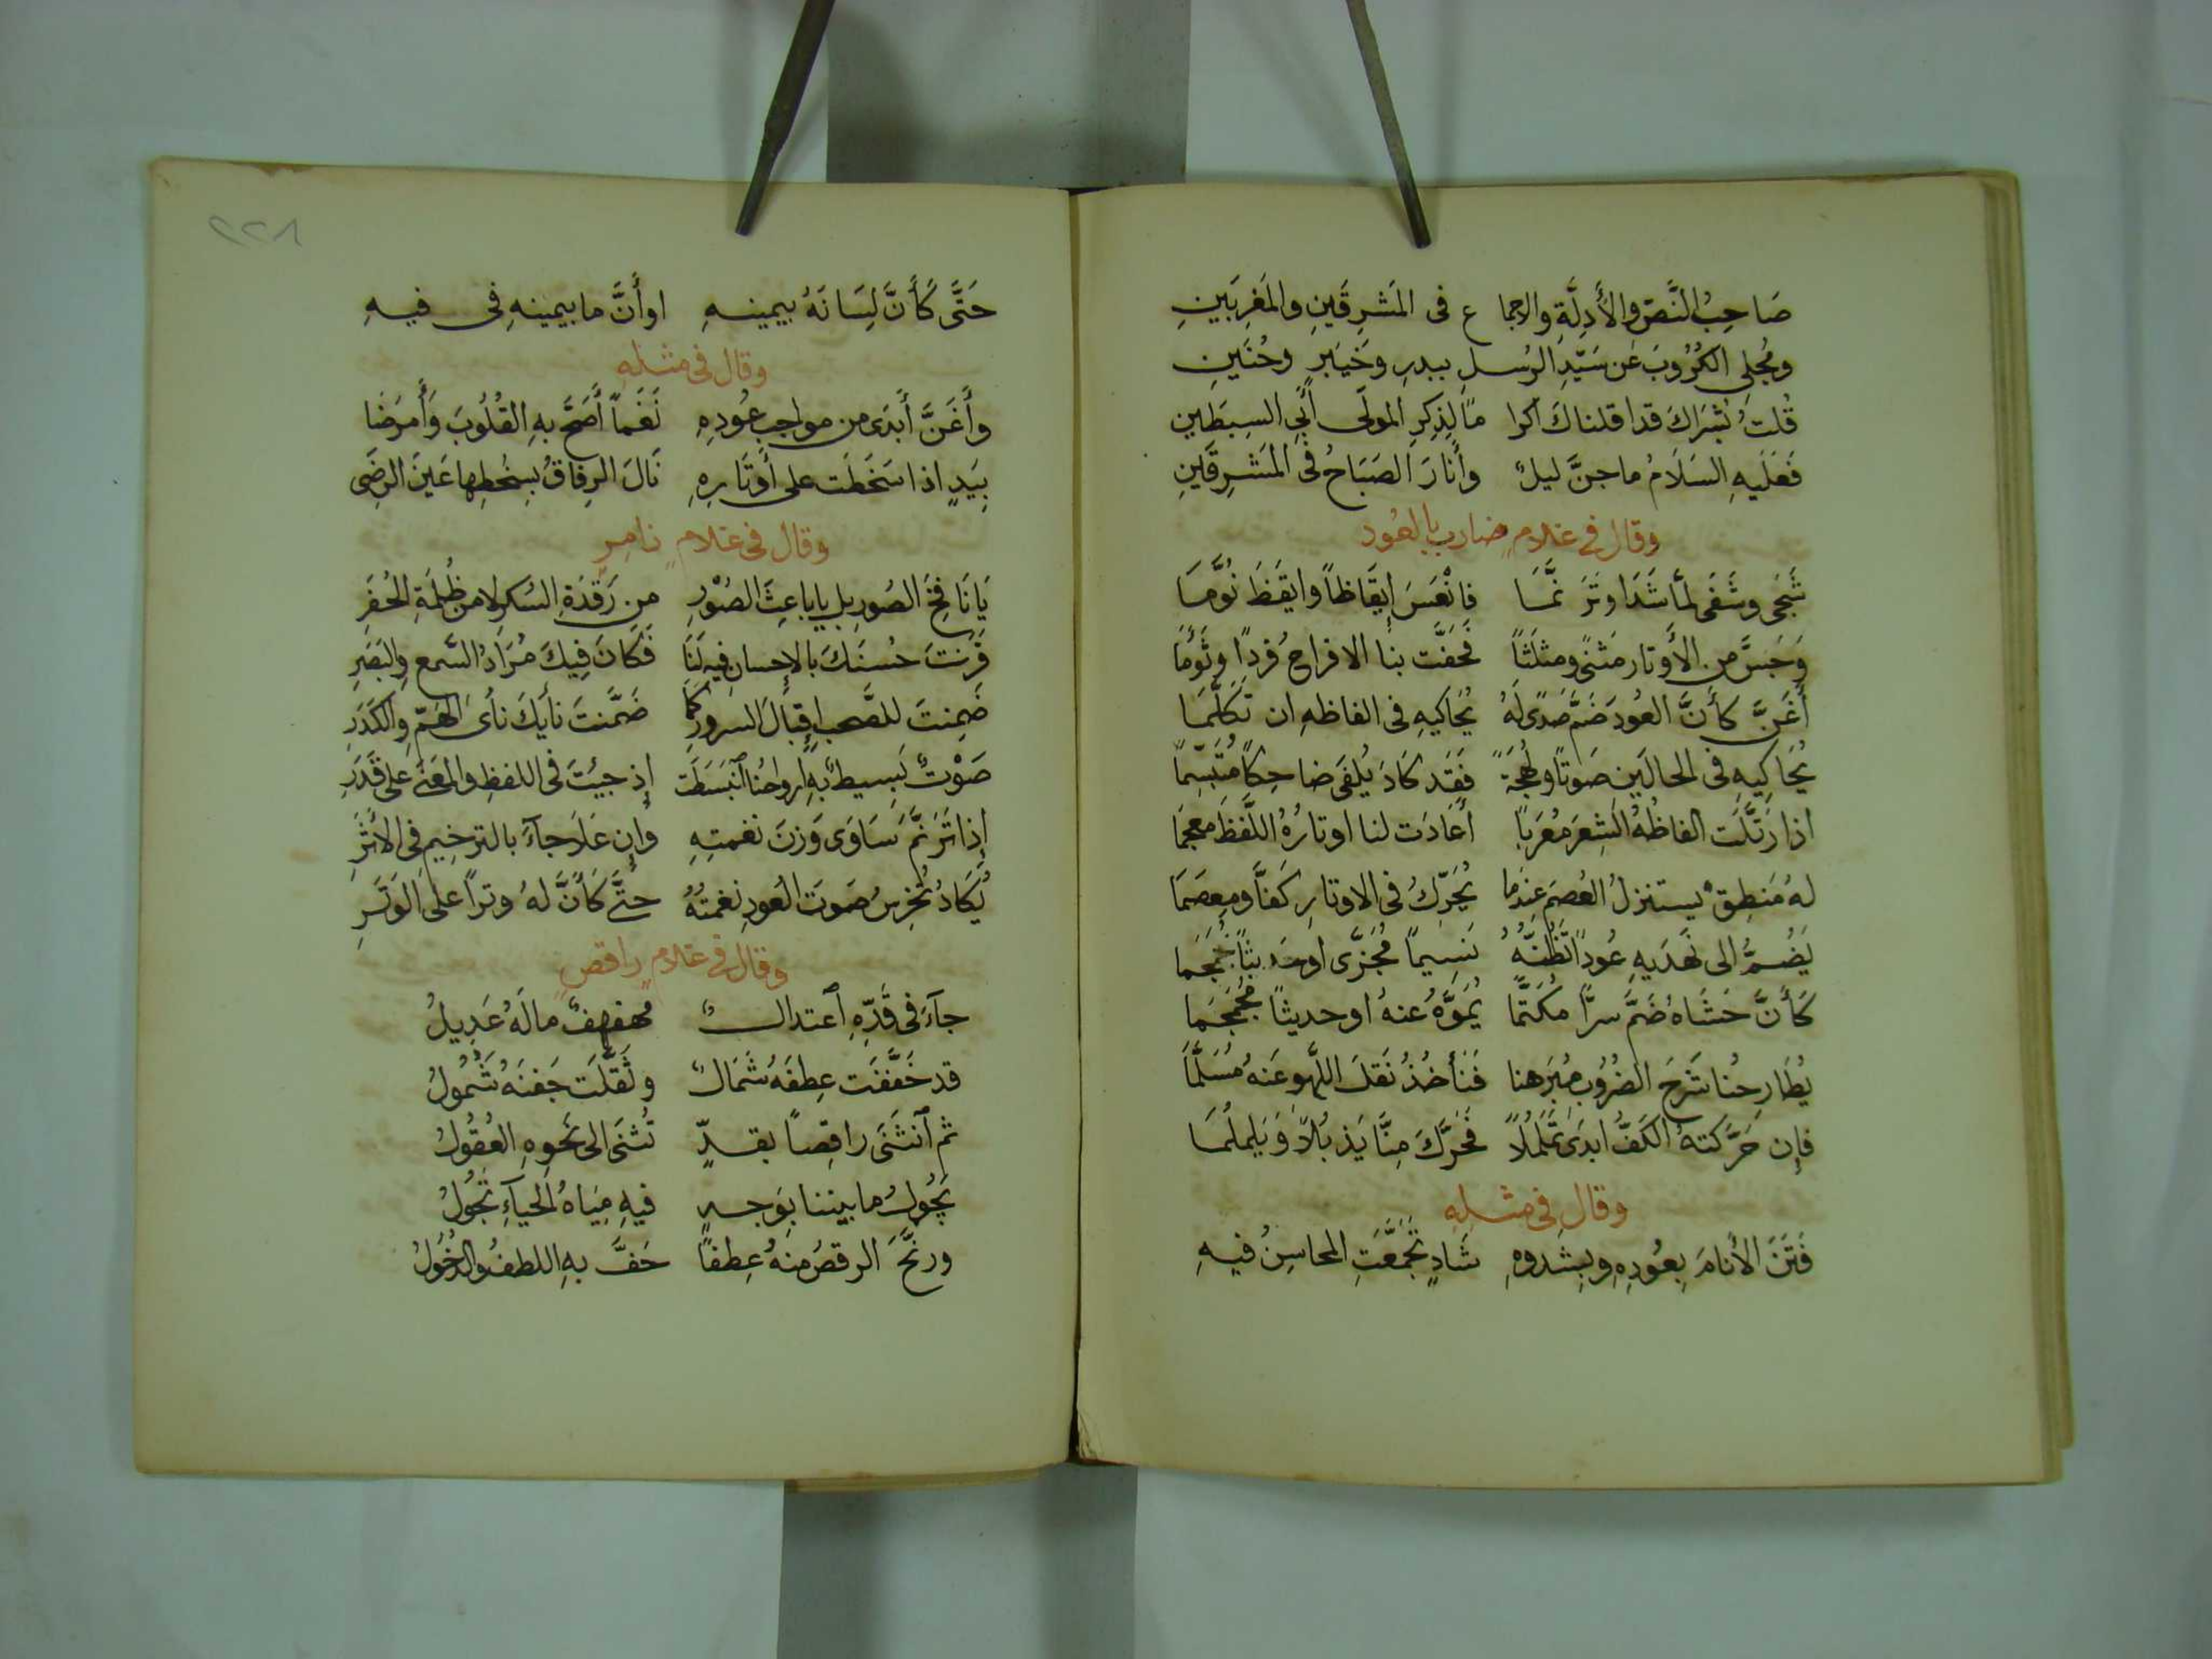 صَاحِبُ النَّصّ والأَدِلَّةِ والاجما ع فى المَشرِقَينِ والمَغرِبَينِ
ومُجلِى الكُرُوبَ عَن سَيّدِ الرُسلِ ببدرٍ وخَيبَرٍ وحُنَينِ
قُلتُ بُشرَاكَ قد اقلناك اكرا مًا لِذِكرِ المولَى أبِى السِبطَينِ
فَعَلَيهِ السَلَامُ ما جنَّ ليلٌ وأنارَ الصَبَاحُ فى المَشرِقَينِ
وقال فى غلامٍ ضاربٍ بالعُود
شَجَى وشَفَى لمَّا شَدَا وتَرَنَّمَا فانْعَسَ ايقَاظاً وايقَظَ نُوَّمَا
وَجَسَّ من الأَوتار مَثنىً ومثلَثاً فَحَفَّت بنا الافراحُ فُردًا وتَوءُمَا
أَغَنَّ كأَنَّ العُودَ ضَمَّ صَدىً لَهُ يُحَاكيهِ فى الفاظهِ ان تَكَلَّمَا
يُحَاكِيهِ فى الحالَين صَوتاً ولهجَةً فقَد كَادَ يُلفَى ضاحِكاً مُتَبَسِّمَا
اذا رَتَّلَت الفاظُهُ الشِعرَ مُعرَباً أعَادَت لنا اوتارُهُ اللَّفظَ معجَمَا
لهُ مَنطِقٌ يستنزلُ العُصمَ عِندَما يُحَرِّكُ فى الاوتارِ كَفاًّ ومِعصَمَا
يَضُمُّ الى نَهدَيهِ عُوداً تَظُنُّهُ نسِيماً مُجَزَّى اوحَديثاً
كَأَنَّ حَشَاهُ ضَمَّ سرًّا مُكَتَّمَا يُمَوَّهُ عنهُ اوحديثاً مُجَمجَمَا
يُطَارِحُنا شَرحَ الضُرُوبِ مُبَرهنا فَنأخُذُ نَقلَ اللَّهوِ عَنهُ مُسَلَّمَا
فإن حَرَّكتهُ الكَفُّ ابدَى تَمَلمُلاً فحَرَّكَ مِنَّا يَذبُلاً وَيَلملَمَا
وقال فى مثلِهِ
فَتَنَ الأَنامَ بِعُودِهِ وبِشَدوِهِ شَادٍ تَجَمَّعَتِ المحاسِنُ فيهِ
٢٢٨
حَتَّى كَأَنَّ لِسَانَهُ بيمينهِ اوأَنَّ ما بيمينهِ فى فيهِ
وقال فى مثلِهِ
وأَغَنَّ أَبدَى من مواجبِ عُودِهِ نَغَماً أَصَحَّ بهِ القُلُوبَ وَأَمرَضَا
بِيَدٍ اذا سَخَطَت على أَوتَارِهِ نَالَ الرِفاقُ بسخطِها عَينَ الرضَى
وقال فى غلامٍ زامرٍ
يَا نَافِخَ الصُورِ بل يا باعِثَ الصُوَرِ من رَقدَةِ السُكرِ لا من ظُلمَةِ الحُفَرِ
قَرنتَ حُسنَكَ بالإحسانِ فيهِ لَنَا فَكَانَ فيكَ مُرَادُ السَّمعِ والبَصَرِ
ضَمِنتَ للصَّحبِ إقبالَ السرورِ كما ضَمَّنتَ نأيَكَ نأىَ الهَمِّ والكَدَرِ
صَوْتٌ بَسِيطٌ بهِ ارواحُنا ٱنبَسَطَت إذ جيتَ فى اللفظِ والمعنَى على قَدَرِ
إذا تَرَنَّمَ سَاوَى وَزنَ نغمتِهِ وإن عَلَا جآءَ بالترخِيمِ فى الأثَرِ
يَكادُ تُخرِسُ صَوتَ العُودِ نغمتُهُ حتَّى كَأَنَّ لهُ وتراً على الوَتَرِ
وقال فى غلامٍ راقصٍ
جآءَ فى قَدِّهِ ٱعتدالٌ مُهفهفٌ مالَهُ عَدِيلُ
قد خَفَّفَت عِطفَهُ شَمَالٌ وثَقَّلَت جَفنَهُ شَمُولُ
ثم ٱنثنَى راقِصاً بقدٍّ تُثنَى الى نَحوِهِ العُقُولُ
يَجُولُ ما بيننا بوَجهٍ فيهِ مِيَاهُ الحيآءِ تَجُولُ
ورنَّحَ الرقصُ منهُ عِطفًا حَفَّ بهِ اللطفُ والدُخُولُ